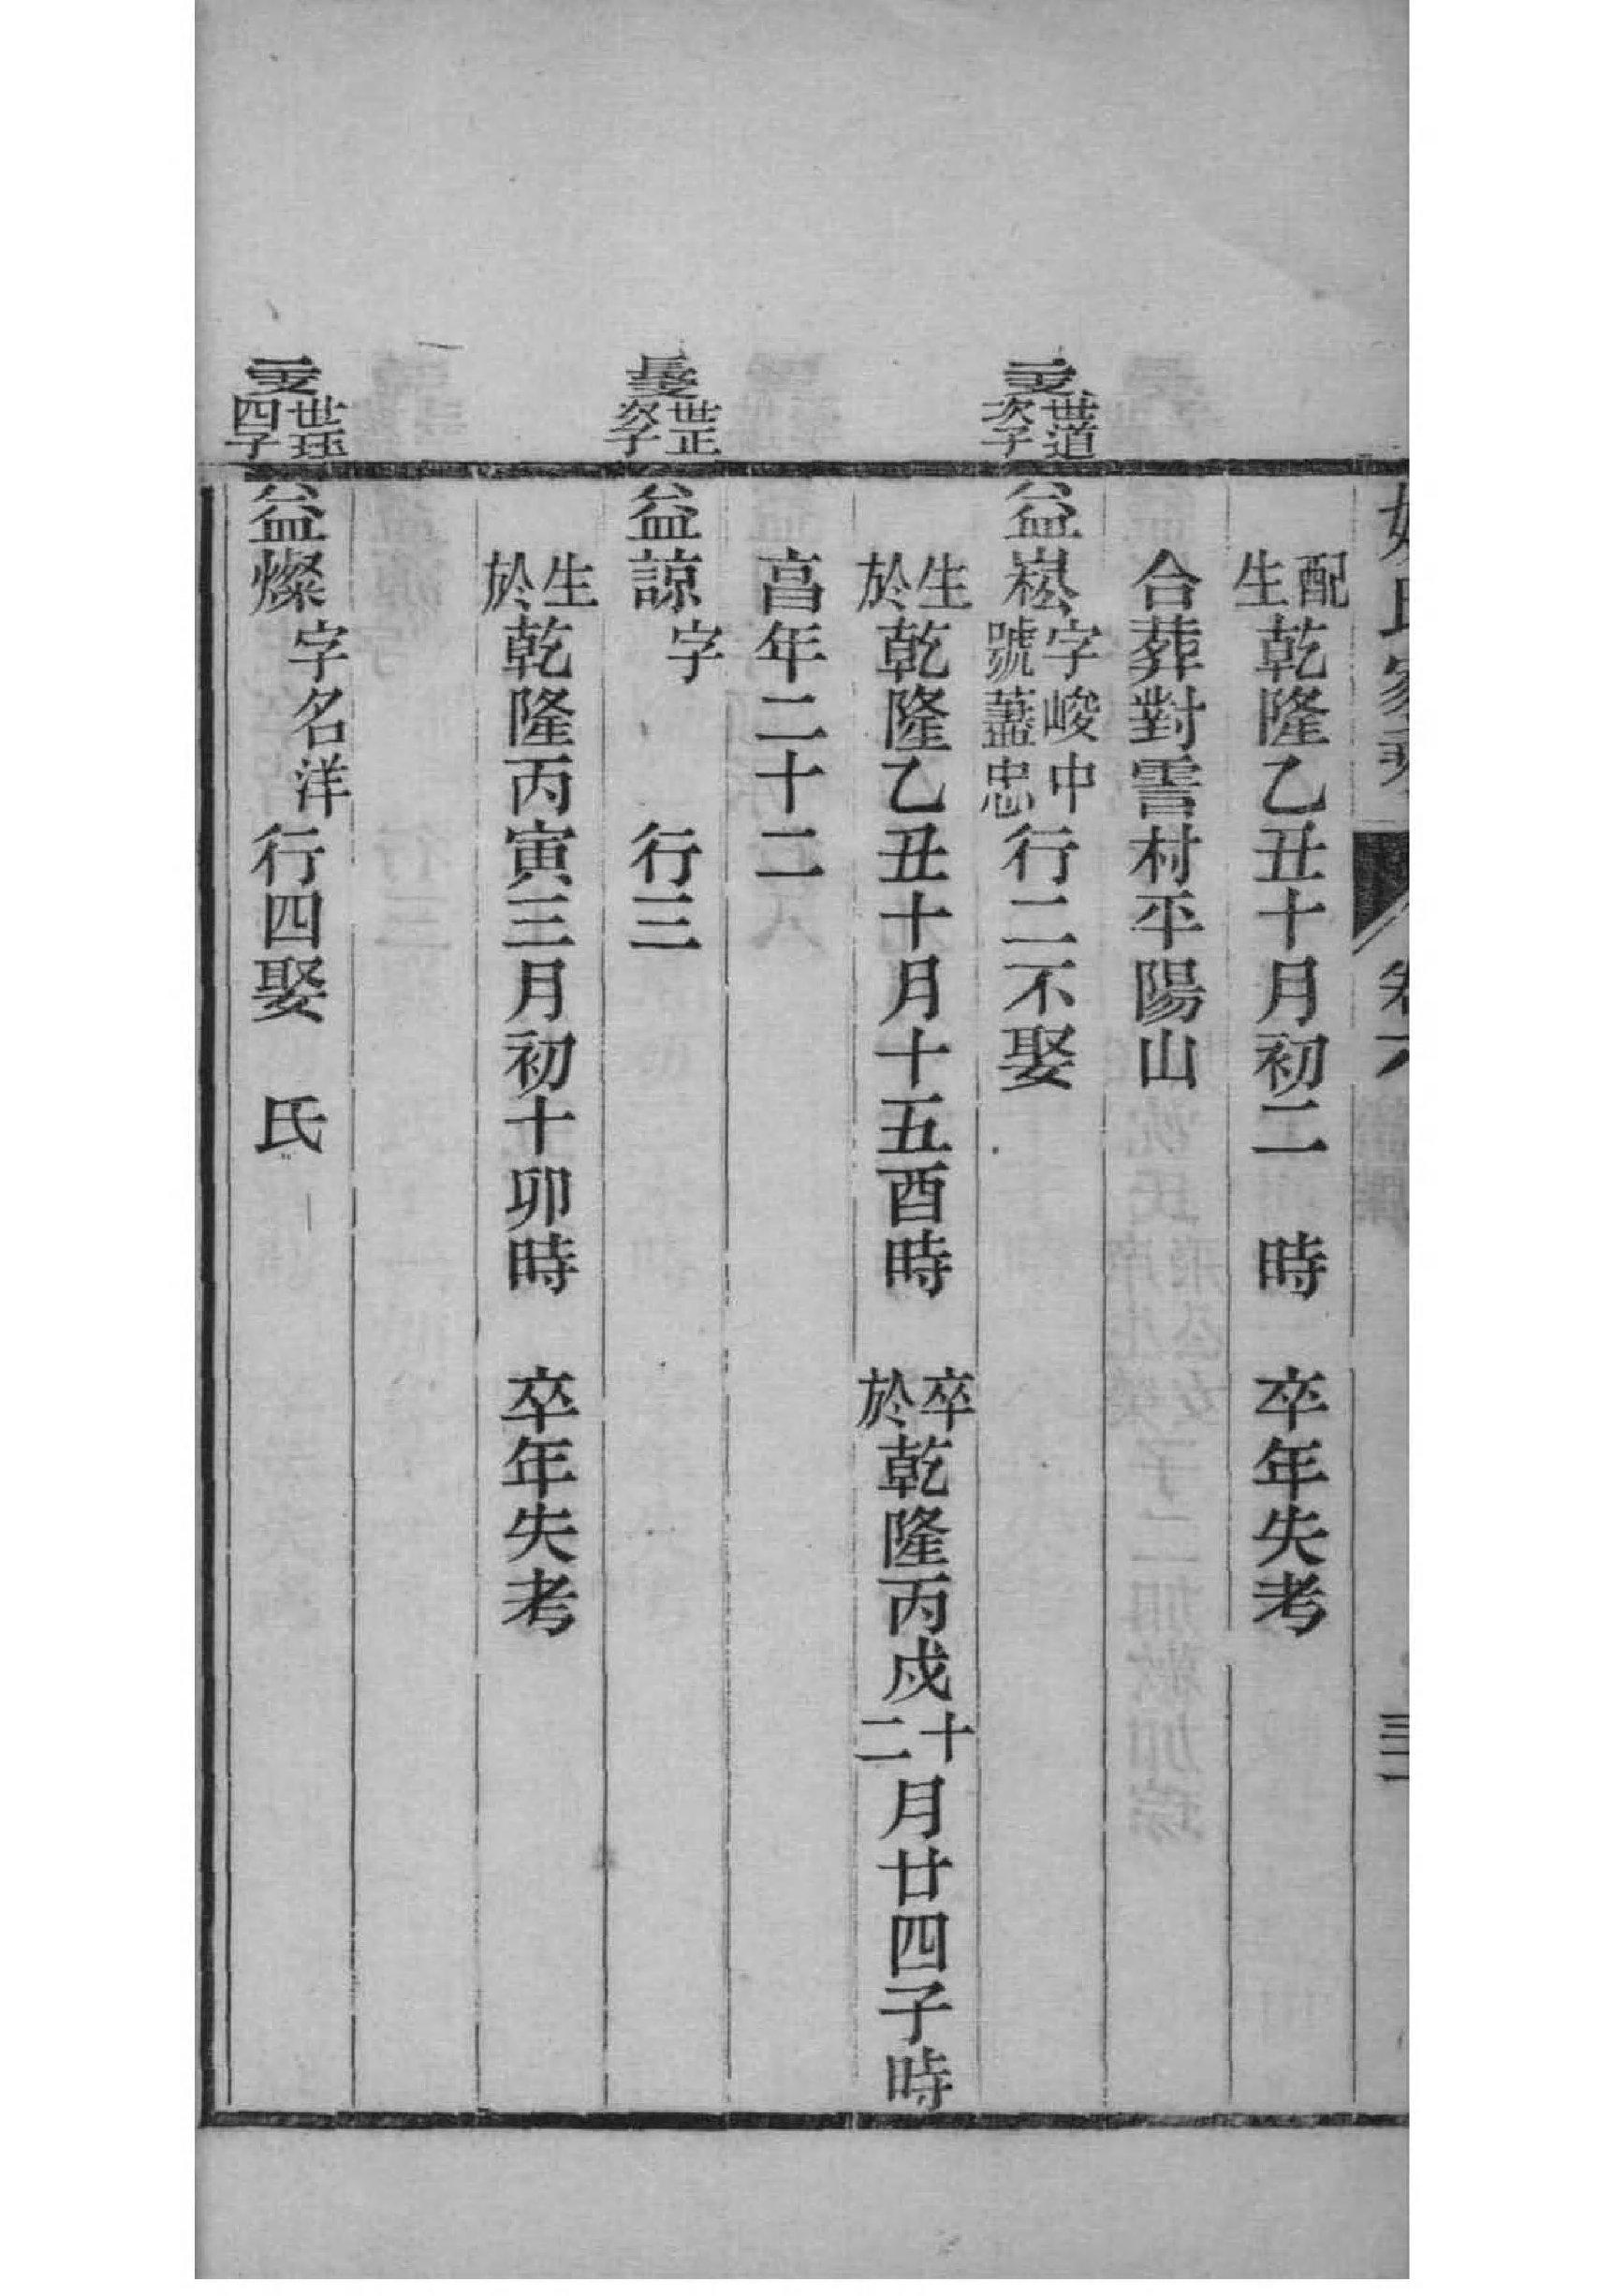 配生乾隆乙丑十月初二　時　卒年失考
合葬對雲村平陽山
二支世道次子
益崧字峻中號藎忠行二不娶
生於乾隆乙丑十月十五酉時　卒於乾隆丙戌十二月廿四子時
亯年二十二
長支世正次子
益諒字　　行三
生於乾隆丙寅三月初十卯時　卒年失考
二支世珏四子
益燦字名洋行四娶　氏